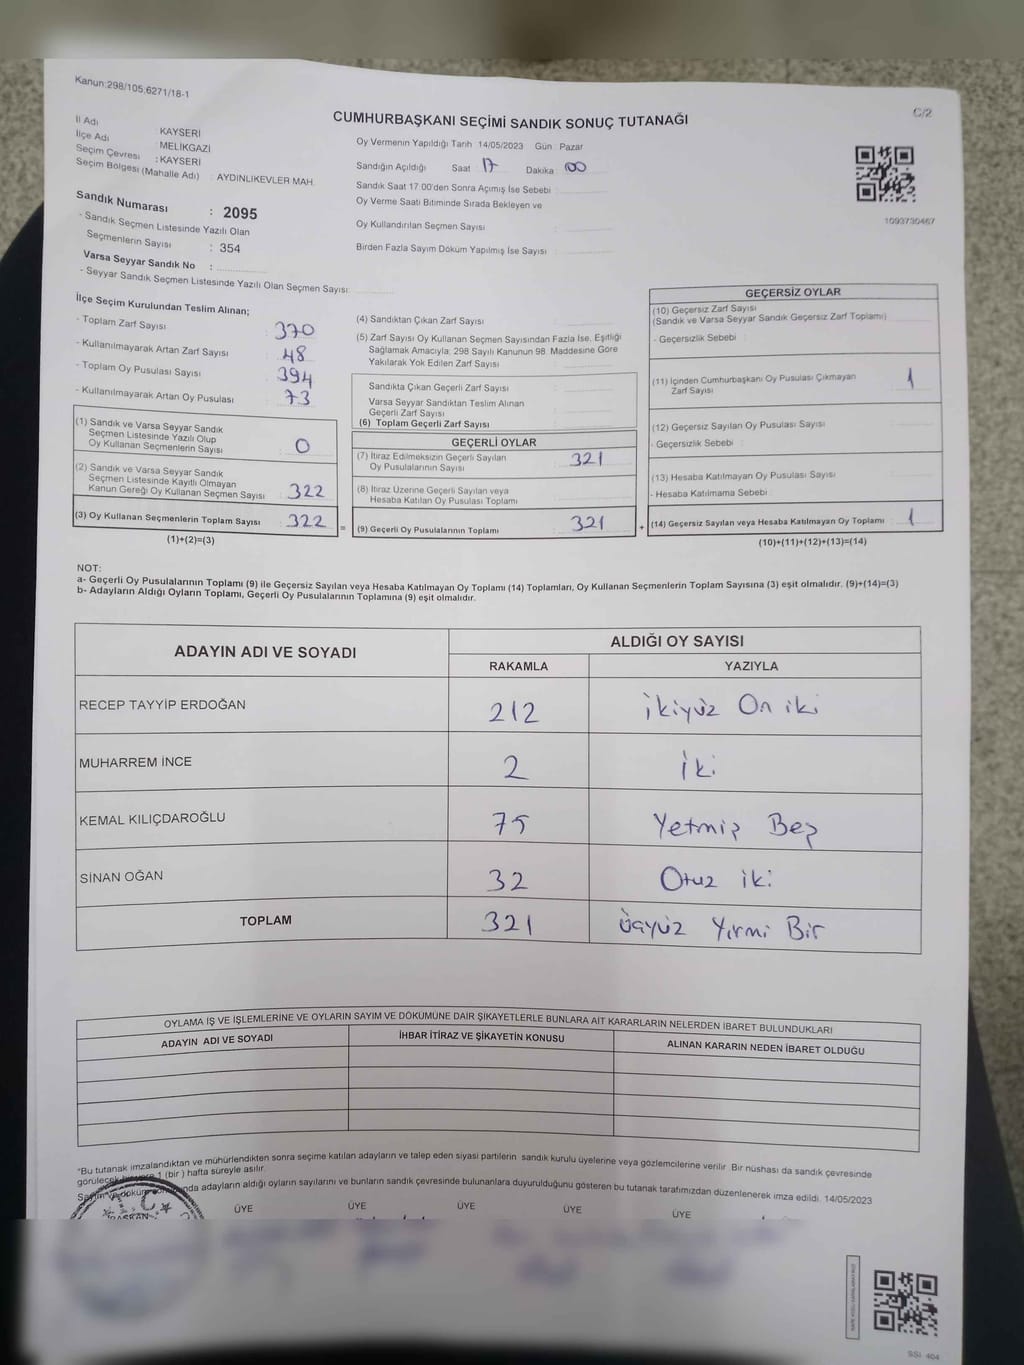 Kanun:298/105,6271/18-1
C/2
CUMHURBAŞKANI SEÇİMİ SANDIK SONUÇ TUTANAĞI
İl Adı : KAYSERİ
İlçe Adı : MELİKGAZİ
Seçim Çevresi : KAYSERİ
Seçim Bölgesi (Mahalle Adı) : AYDINLIKEVLER MAH.
Sandık Numarası : 2095
- Sandık Seçmen Listesinde Yazılı Olan
Seçmenlerin Sayısı : 354
Varsa Seyyar Sandık No :
- Seyyar Sandık Seçmen Listesinde Yazılı Olan Seçmen Sayısı:
Oy Vermenin Yapıldığı Tarih 14/05/2023 Gün : Pazar
Sandığın Açıldığı Saat 17 Dakika : 00
Sandık Saat 17:00'den Sonra Açımış İse Sebebi :
Oy Verme Saati Bitiminde Sırada Bekleyen ve
Oy Kullandırılan Seçmen Sayısı :
Birden Fazla Sayım Döküm Yapılmış İse Sayısı :
1093730467
İlçe Seçim Kurulundan Teslim Alınan;
- Toplam Zarf Sayısı : 370
- Kullanılmayarak Artan Zarf Sayısı : 48
- Toplam Oy Pusulası Sayısı : 394
- Kullanılmayarak Artan Oy Pusulası : 73
(1) Sandık ve Varsa Seyyar Sandık
Seçmen Listesinde Yazılı Olup
Oy Kullanan Seçmenlerin Sayısı : 0
(2) Sandık ve Varsa Seyyar Sandık
Seçmen Listesinde Kayıtlı Olmayan
Kanun Gereği Oy Kullanan Seçmen Sayısı : 322
(3) Oy Kullanan Seçmenlerin Toplam Sayısı : 322 =
(1)+(2)=(3)
(4) Sandıktan Çıkan Zarf Sayısı :
(5) Zarf Sayısı Oy Kullanan Seçmen Sayısından Fazla İse, Eşitliği
Sağlamak Amacıyla; 298 Sayılı Kanunun 98. Maddesine Göre
Yakılarak Yok Edilen Zarf Sayısı :
Sandıkta Çıkan Geçerli Zarf Sayısı :
Varsa Seyyar Sandıktan Teslim Alınan
Geçerli Zarf Sayısı :
(6) Toplam Geçerli Zarf Sayısı :
GEÇERLİ OYLAR
(7) İtiraz Edilmeksizin Geçerli Sayılan
Oy Pusulalarının Sayısı : 321
(8) İtiraz Üzerine Geçerli Sayılan veya
Hesaba Katılan Oy Pusulası Toplamı :
(9) Geçerli Oy Pusulalarının Toplamı : 321 +
GEÇERSİZ OYLAR
(10) Geçersiz Zarf Sayısı
(Sandık ve Varsa Seyyar Sandık Geçersiz Zarf Toplamı)
- Geçersizlik Sebebi :
(11) İçinden Cumhurbaşkanı Oy Pusulası Çıkmayan
Zarf Sayısı : 1
(12) Geçersiz Sayılan Oy Pusulası Sayısı :
- Geçersizlik Sebebi :
(13) Hesaba Katılmayan Oy Pusulası Sayısı :
- Hesaba Katılmama Sebebi :
(14) Geçersiz Sayılan veya Hesaba Katılmayan Oy Toplamı : 1
(10)+(11)+(12)+(13)=(14)
NOT:
a- Geçerli Oy Pusulalarının Toplamı (9) ile Geçersiz Sayılan veya Hesaba Katılmayan Oy Toplamı (14) Toplamları, Oy Kullanan Seçmenlerin Toplam Sayısına (3) eşit olmalıdır. (9)+(14)=(3)
b- Adayların Aldığı Oyların Toplamı, Geçerli Oy Pusulalarının Toplamına (9) eşit olmalıdır.
ADAYIN ADI VE SOYADI ALDIĞI OY SAYISI
RAKAMLA YAZIYLA
RECEP TAYYİP ERDOĞAN 212 İkiyüz On iki
MUHARREM İNCE 2 İki
KEMAL KILIÇDAROĞLU 75 Yetmiş Beş
SİNAN OĞAN 32 Otuz iki
TOPLAM 321 üçyüz Yirmi Bir
OYLAMA İŞ VE İŞLEMLERİNE VE OYLARIN SAYIM VE DÖKÜMÜNE DAİR ŞİKAYETLERLE BUNLARA AİT KARARLARIN NELERDEN İBARET BULUNDUKLARI
ADAYIN ADI VE SOYADI İHBAR İTİRAZ VE ŞİKAYETİN KONUSU ALINAN KARARIN NEDEN İBARET OLDUĞU
"Bu tutanak imzalandıktan ve mühürlendikten sonra seçime katılan adayların ve talep eden siyasi partilerin sandık kurulu üyelerine veya gözlemcilerine verilir. Bir nüshası da sandık çevresinde
görülecek bir yere 1 (bir) hafta süreyle asılır.
Sayım ve döküm sonunda adayların aldığı oyların sayılarını ve bunların sandık çevresinde bulunanlara duyurulduğunu gösteren bu tutanak tarafımızdan düzenlenerek imza edildi. 14/05/2023
T.C.
BAŞKAN
ÜYE ÜYE ÜYE ÜYE ÜYE
SSI 404